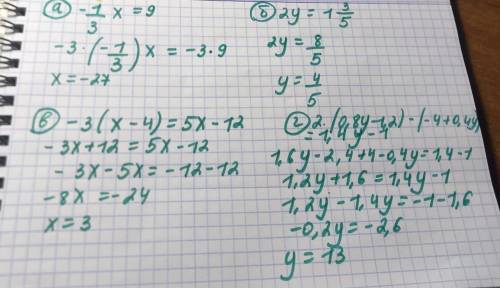 а) -1/3 x = 9
-3·(-1/3)x = -3·9
x = -27
б) 2y = 1 3/5
2y = 8/5
y = 4/5
в) -3(x-4) = 5x-12
-3x+12 = 5x-12
-3x-5x = -12-12
-8x = -24
x = 3
г) 2·(0,8y-1,2)-(-4+0,4y)
= 1,4y-1
1,6y-2,4+4-0,4y = 1,4-1
1,2y+1,6 = 1,4y-1
1,2y-1,4y = -1-1,6
-0,2y = -2,6
y = 13